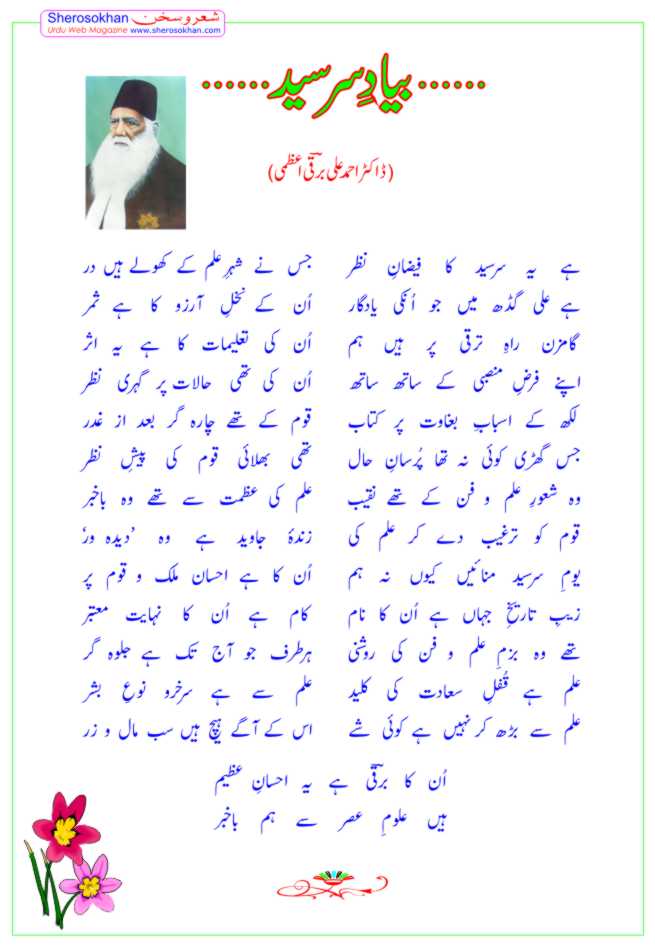 Sherosokhan شعر و سخن
Urdu Web Magazine www.sherosokhan.com
...... بیادِ سر سید ......
(ڈاکٹر احمد علی برقیؔ اعظمی)
ہے یہ سرسید کا فیضانِ نظر جس نے شہرِ علم کے کھولے ہیں در
ہے علی گڈھ میں جو اُنکی یادگار اُن کے نخلِ آرزو کا ہے ثمر
گامزن راہِ ترقی پر ہیں ہم اُن کی تعلیمات کا ہے یہ اثر
اپنے فرضِ منصبی کے ساتھ ساتھ اُن کی تھی حالات پر گہری نظر
لکھ کے اسبابِ بغاوت پر کتاب قوم کے تھے چارہ گر بعد از غدر
جس گھڑی کوئی نہ تھا پُرسانِ حال تھی بھلائی قوم کی پیشِ نظر
وہ شعورِ علم و فن کے تھے نقیب علم کی عظمت سے تھے وہ باخبر
قوم کو ترغیب دے کر علم کی زندۂ جاوید ہے وہ ’دیدہ ور‘
یومِ سرسید منائیں کیوں نہ ہم اُن کا ہے احسان ملک و قوم پر
زیبِ تاریخِ جہاں ہے اُن کا نام کام ہے اُن کا نہایت معتبر
تھے وہ بزمِ علم و فن کی روشنی ہرطرف جو آج تک ہے جلوہ گر
علم ہے قُفلِ سعادت کی کلید علم سے ہے سرخرو نوعِ بشر
علم سے بڑھ کر نہیں ہے کوئی شے اس کے آگے ہیچ ہیں سب مال و زر
اُن کا برقیؔ ہے یہ احسانِ عظیم
ہیں علومِ عصر سے ہم باخبر